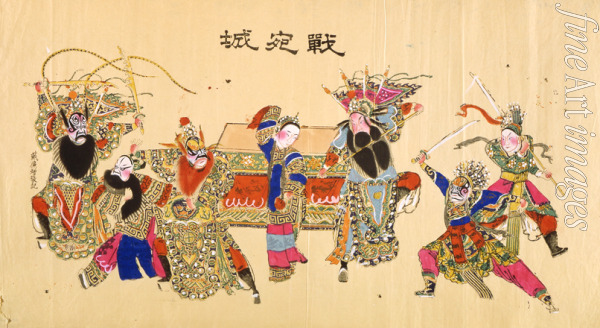 戰宛城
fineArtimages